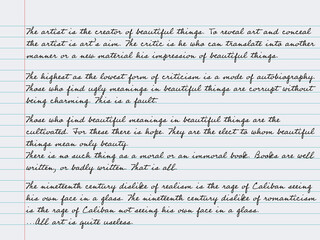 The artist is the creator of beautiful things. To reveal art and conceal
the artist is art's aim. The critic is he who can translate into another
manner or a new material his impression of beautiful things.
The highest as the lowest form of criticism is a mode of autobiography.
Those who find ugly meanings in beautiful things are corrupt without
being charming. This is a fault.
Those who find beautiful meanings in beautiful things are the
cultivated. For these there is hope. They are the elect to whom beautiful
things mean only beauty.
There is no such thing as a moral or an immoral book. Books are well
written, or badly written. That is all.
The nineteenth century dislike of realism is the rage of Caliban seeing
his own face in a glass. The nineteenth century dislike of romanticism
is the rage of Caliban not seeing his own face in a glass.
...All art is quite useless.